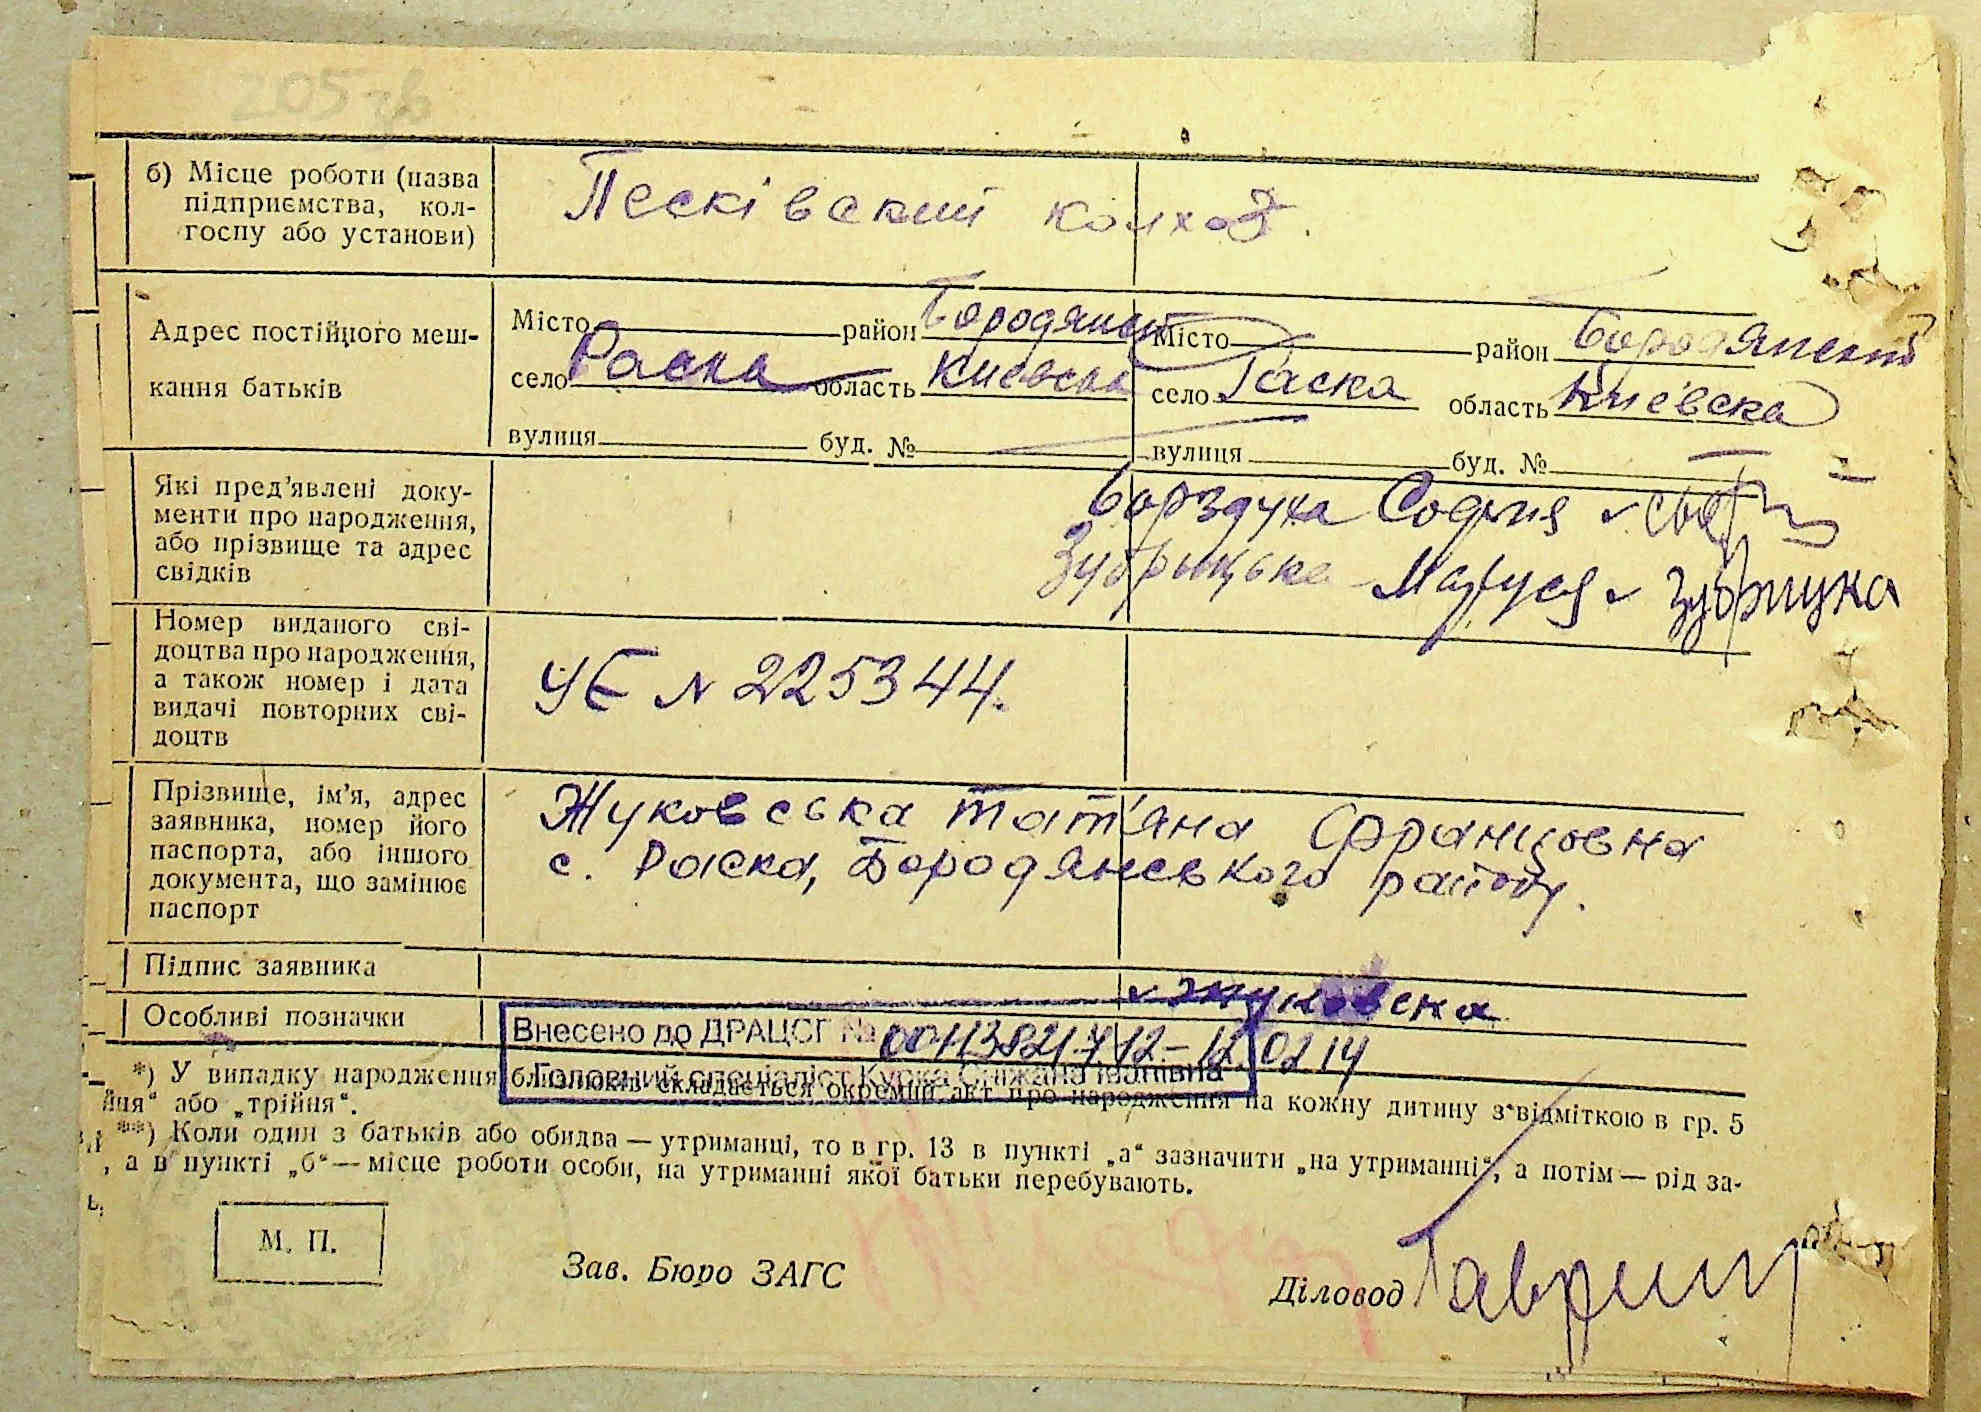 205 зв
б) Місце роботи (назва
підприємства, кол-
госпу або установи)
Песківский колхоз.
Адрес постійного меш-
кання батьків
Місто район Бородянськ
село Раска область Киевска
вулиця буд. №
Місто район Бородянский
село Раска область Киевска
вулиця буд. №
Які пред'явлені доку-
менти про народження,
або прізвище та адрес
свідків
Борздуха София
Зубрицька Маруся
Номер виданого сві-
доцтва про народження,
а також номер і дата
видачі повторних сві-
доцтв
УЕ N 225344.
Прізвище, ім'я, адрес
заявника, номер його
паспорта, або іншого
документа, що замінює
паспорт
Жуковська Тат'яна Францовна
с. Раска, Бородянського району.
Підпис заявника
жуковска
Особливі позначки
Внесено до ДРАЦСГ №
Головний спеціаліст Курка Сніжана Іванівна
*) У випадку народження близнюків складається окремий акт про народження на кожну дитину з відміткою в гр. 5
йня" або „трійня".
**) Коли один з батьків або обидва — утриманці, то в гр. 13 в пункті „а" зазначити „на утриманні", а потім — рід за-
, а в пункті „б" — місце роботи особи, на утриманні якої батьки перебувають.
М. П.
Зав. Бюро ЗАГС
Діловод